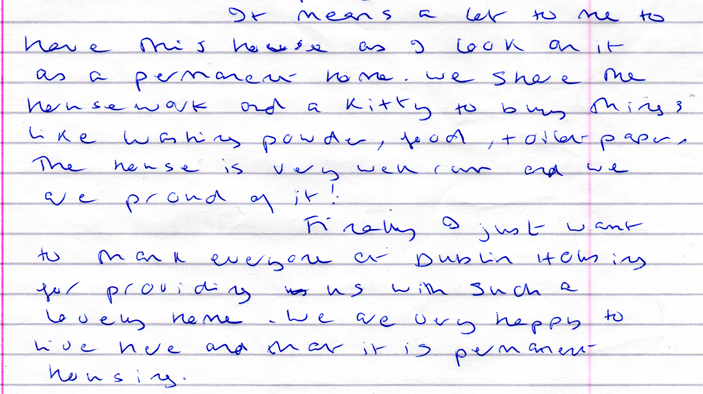 It means a lot to me to
have this house as I look on it
as a permanent home. We share the
housework and a kitty to buy things
like washing powder, food, toilet paper.
The house is very well run and we
are proud of it!
Finally I just want
to thank everyone at Dublin Housing
for providing us with such a
lovely home. We are very happy to
live here and that it is permanent
housing.